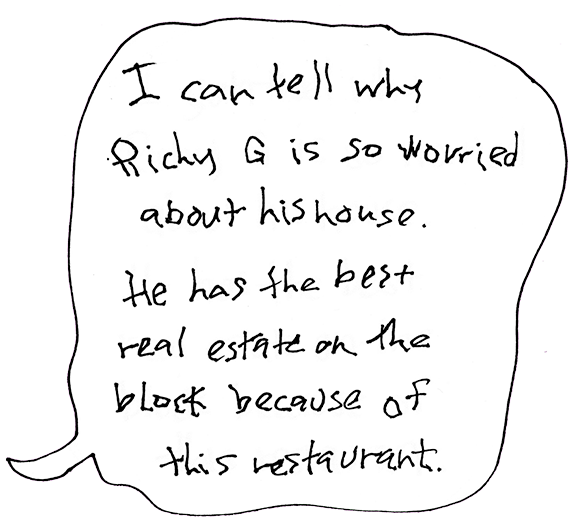 I can tell why
Richy G is so worried
about his house.
He has the best
real estate on the
block because of
this restaurant.